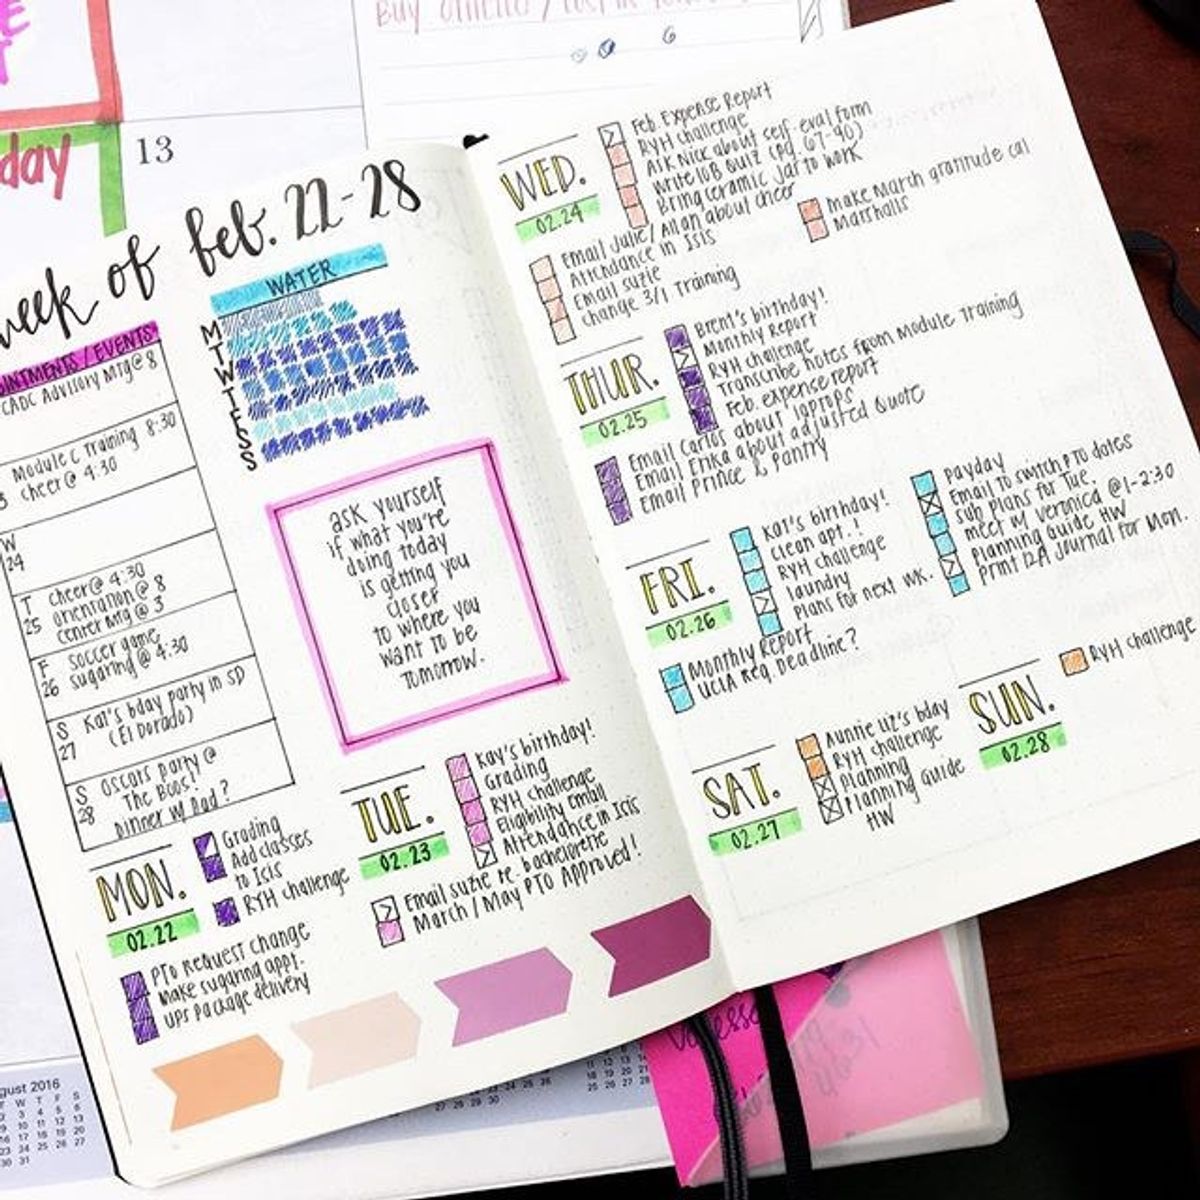 13
week of feb. 22-28
APPOINTMENTS / EVENTS
CADC Advisory Mtg @ 8
Module C Training 8:30
cheer @ 4:30
W
24
T
25
cheer @ 4:30
orientation @ 8
center mtg @ 3
F
26
soccer game
sugaring @ 4:30
S
27
Kat's bday party in SD
(El Dorado)
S
28
Oscars party @
The Boos!
Dinner w/ Dad?
WATER
M
T
W
T
F
S
S
ask yourself
if what you're
doing today
is getting you
closer
to where you
want to be
tomorrow.
MON.
02.22
Grading
Add classes
to Isis
RYH challenge
PTO Request change
make sugaring appt.
UPS Package delivery
TUE.
02.23
Kay's birthday!
Grading
RYH challenge
Eligibility email
Attendance in Isis
Email suzie re. bachelorette
March / May PTO Approved!
WED.
02.24
Feb. Expense Report
RYH challenge
Ask Nick about self-eval form
Write 10B Quiz (pd. 67-90)
Bring ceramic jar to work
Email Julie / Allan about cheer
Attendance in Isis
Email suzie
change 3/1 Training
make March gratitude cal
Marshalls
THUR.
02.25
Brent's birthday!
Monthly Report
RYH challenge
Transcribe notes from Module Training
Feb. expense report
Email Carlos about laptops
Email Erika about adjusted Quote
Email Prince & Pantry
FRI.
02.26
Kat's birthday!
clean apt.!
RYH challenge
laundry
Plans for next wk.
Monthly Report
UCLA Req. Deadline?
Payday
Email to switch PTO dates
sub plans for Tue.
meet w/ Veronica @ 1-2:30
Planning Guide HW
Print 12A Journal for Mon.
SAT.
02.27
Auntie Liz's bday
RYH challenge
Planning
Planning Guide
HW
SUN.
02.28
RYH challenge
August 2016